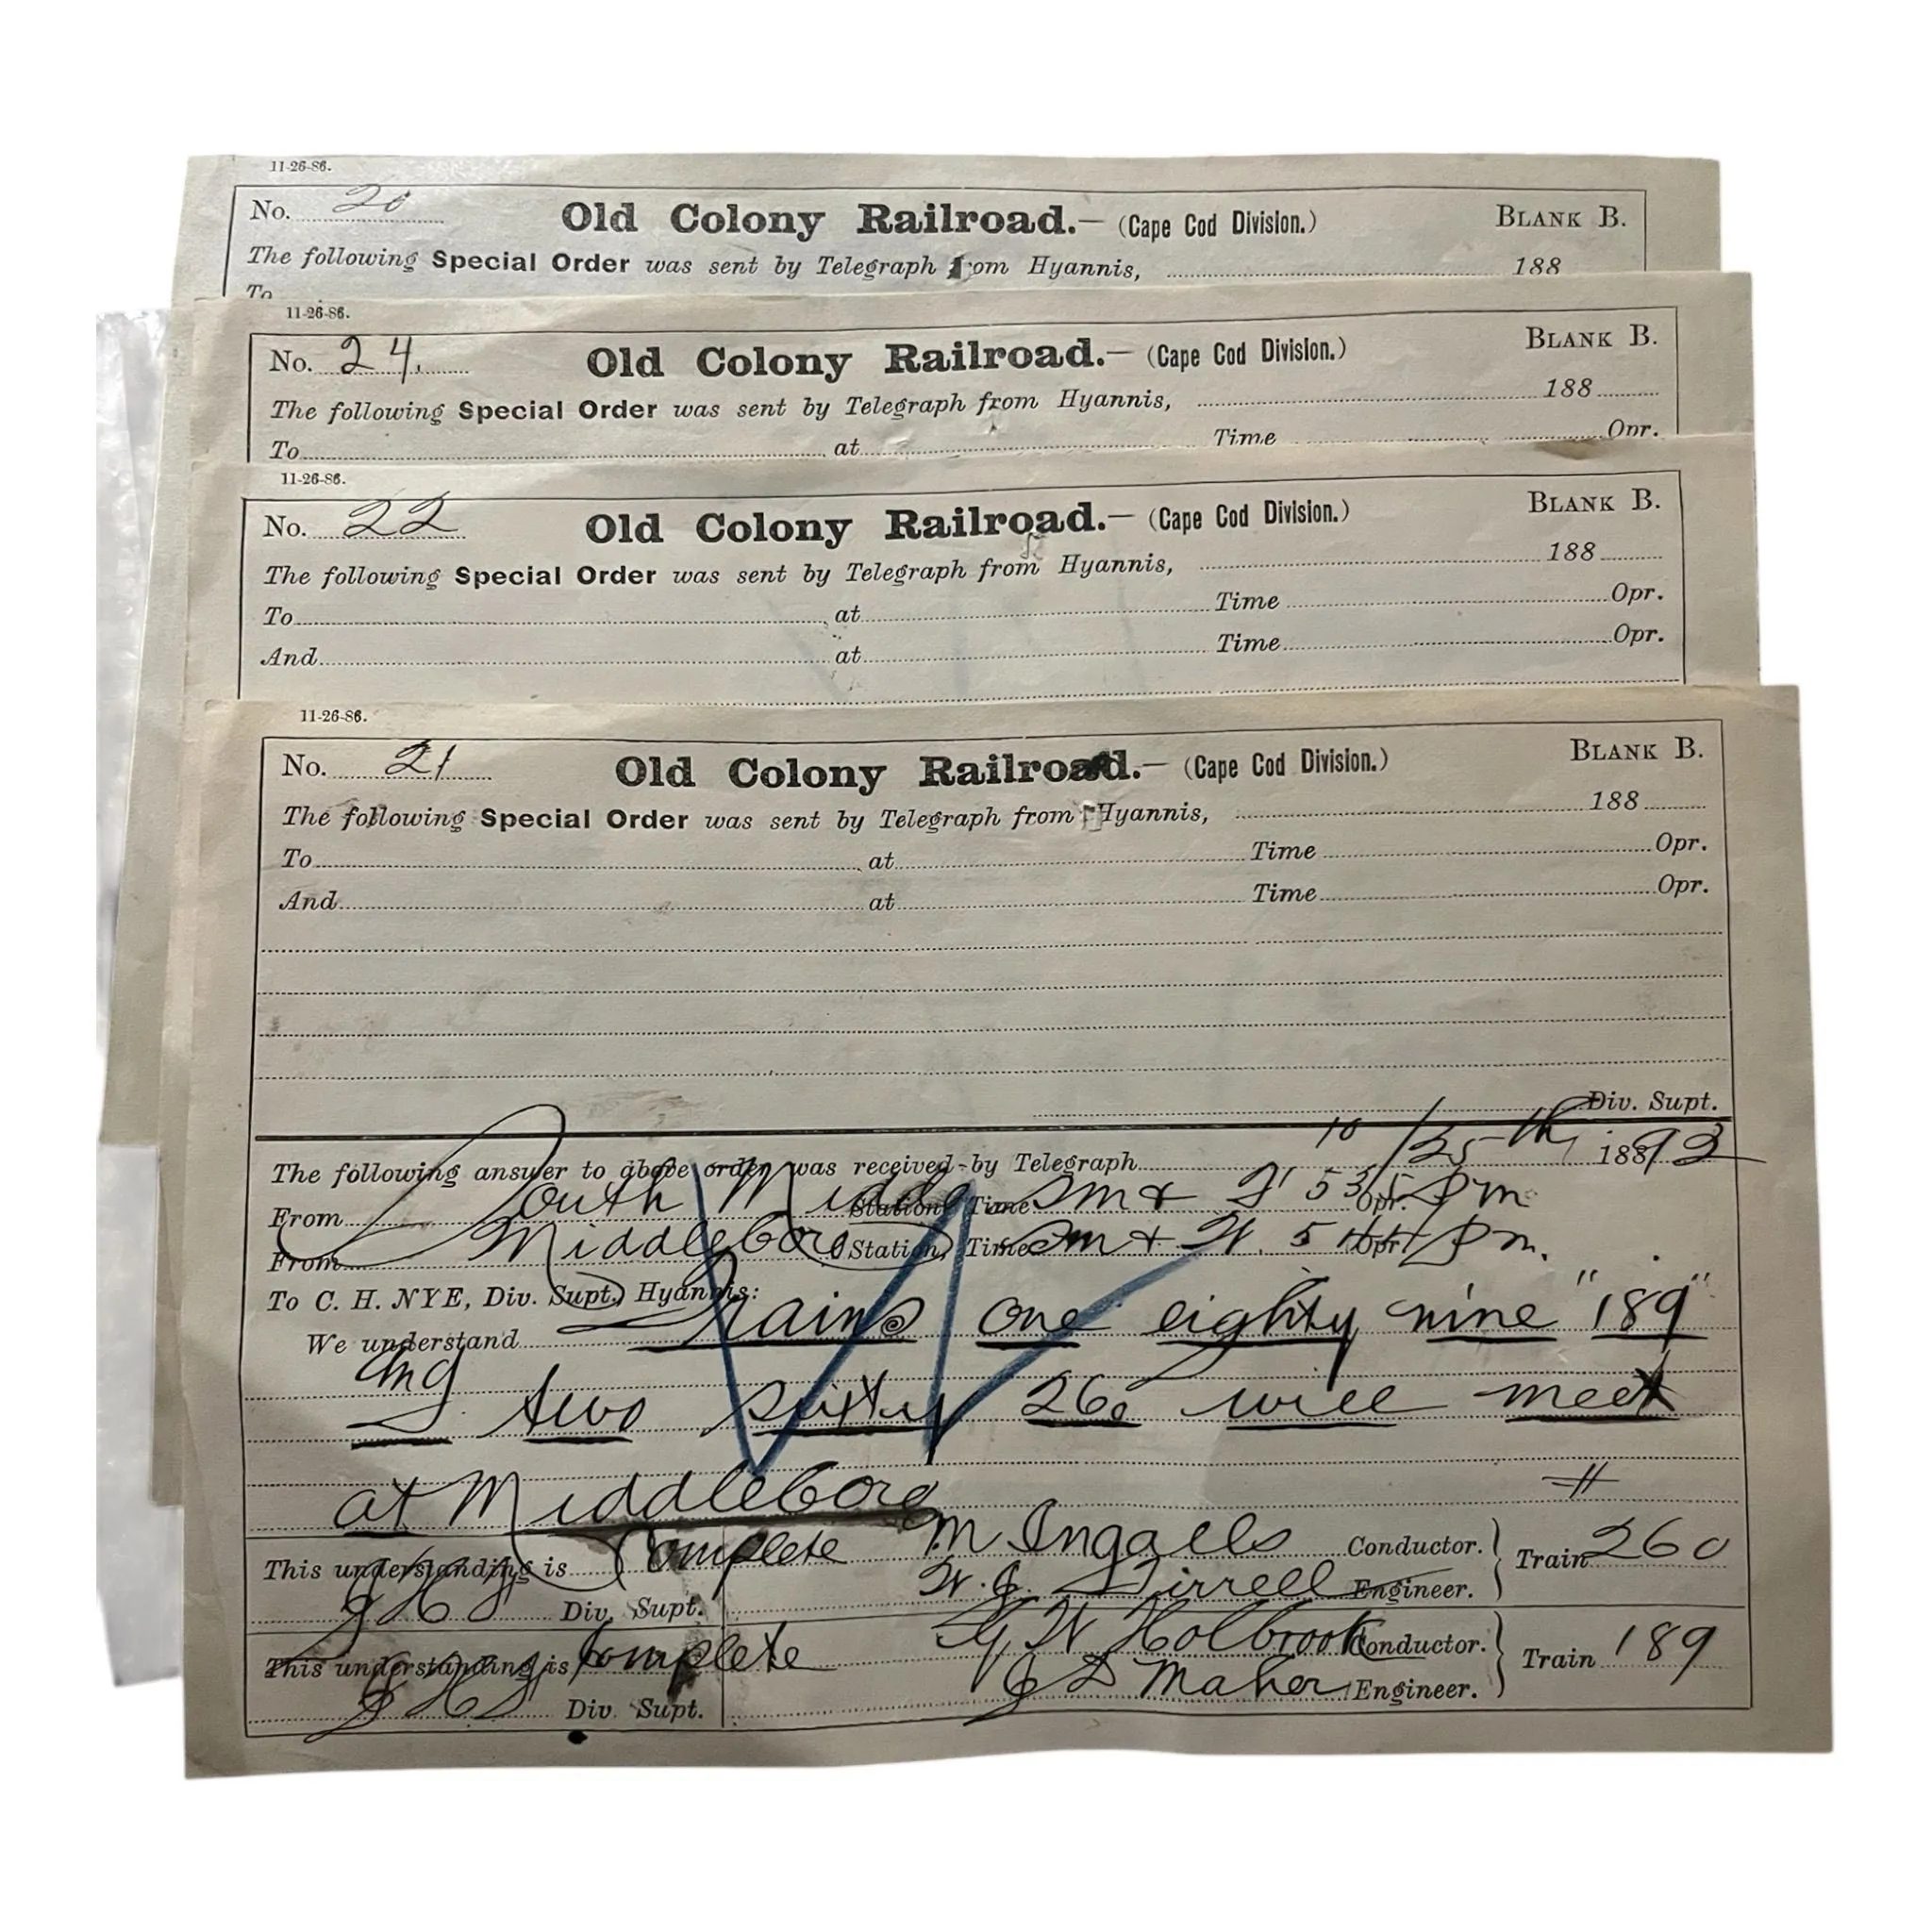 11-26-86.
No. 20 Old Colony Railroad.— (Cape Cod Division.) BLANK B.
The following Special Order was sent by Telegraph from Hyannis, 188
To
11-26-86.
No. 24. Old Colony Railroad.— (Cape Cod Division.) BLANK B.
The following Special Order was sent by Telegraph from Hyannis, 188
To at Time Opr.
11-26-86.
No. 22 Old Colony Railroad.— (Cape Cod Division.) BLANK B.
The following Special Order was sent by Telegraph from Hyannis, 188
To at Time Opr.
And at Time Opr.
11-26-86.
No. 21 Old Colony Railroad.— (Cape Cod Division.) BLANK B.
The following Special Order was sent by Telegraph from Hyannis, 188
To at Time Opr.
And at Time Opr.
Div. Supt.
The following answer to above order, was received by Telegraph 10/25th 188 92
From South Middleboro Station, Time Opr. Pm
From Middleboro Station, Time Opr. Pm.
To C. H. NYE, Div. Supt., Hyannis:
We understand Trains one eighty nine "189"
and two sixty 260 will meet
at Middleboro
This understanding is Complete M Ingalls Conductor. } Train 260
Div. Supt. W. J. Tirrell Engineer.
This understanding is Complete G W Holbrook Conductor. } Train 189
Div. Supt. J D Maher Engineer.